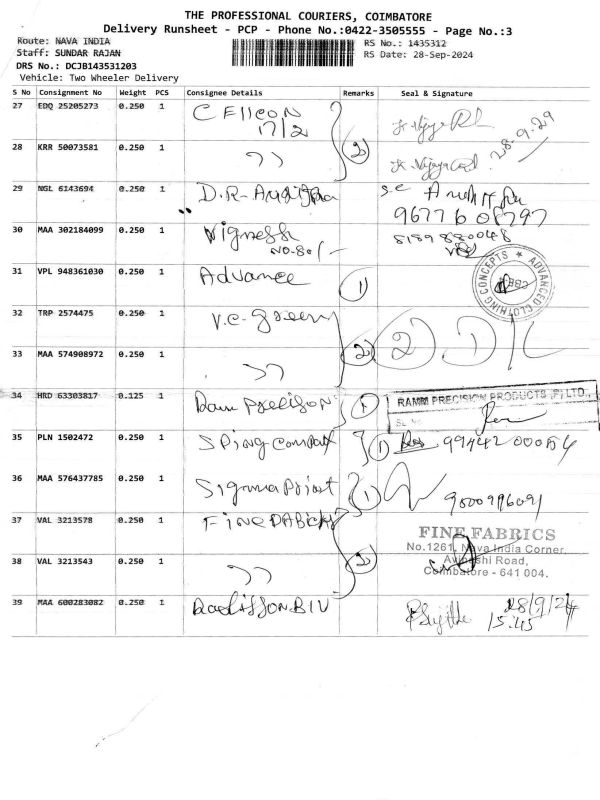 THE PROFESSIONAL COURIERS, COIMBATORE
Delivery Runsheet - PCP - Phone No.:0422-3505555 - Page No.:3
Route: NAVA INDIA
RS No.: 1435312
Staff: SUNDAR RAJAN
RS Date: 28-Sep-2024
DRS No.: DCJB143531203
Vehicle: Two Wheeler Delivery
S No Consignment No Weight PCS Consignee Details Remarks Seal & Signature
27 EDQ 25205273 0.250 1 Cellcon
17/2
28 KRR 50073581 0.250 1 ,, 2
29 NGL 6143694 0.250 1 D.R.
30 MAA 302184099 0.250 1 Vignessh
NO.80/-
31 VPL 948361030 0.250 1 Advance 1
ADVANCED CLOTHING CONCEPTS
CBE
32 TRP 2574475 0.250 1 V.C. Green
33 MAA 574908972 0.250 1 ,, 2 2 D/C
34 HRD 63303817 0.125 1 Ram Precison 1
RAMM PRECISION PRODUCTS (P) LTD.,
35 PLN 1502472 0.250 1 1 99442 00054
36 MAA 576437785 0.250 1 Sigma Print 1
37 VAL 3213578 0.250 1 Fine
FINE FABRICS
No.1261, Nava India Corner,
38 VAL 3213543 0.250 1 ,, 2
Avinashi Road,
Coimbatore - 641 004.
39 MAA 600283082 0.250 1
28/9/24
15:45